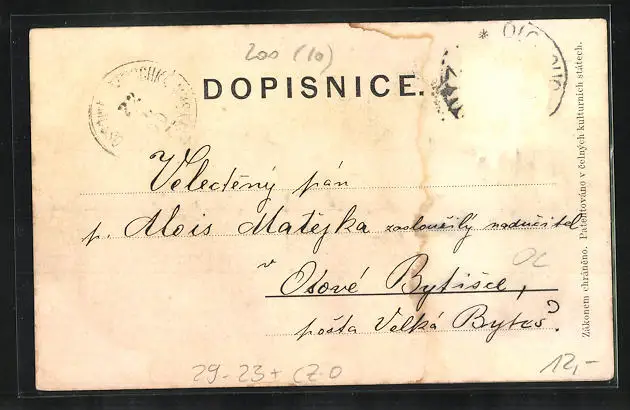 200 (10)
DOPISNICE.
22
Veleděný pán
p. Alois Matějka zasloužilý nadučitel
v Osové Bytišce,
pošta Velká Byteš.
OC
Zákonem chráněno. Patentováno v čelných kulturních státech.
29-23+ CZ-O
12,-